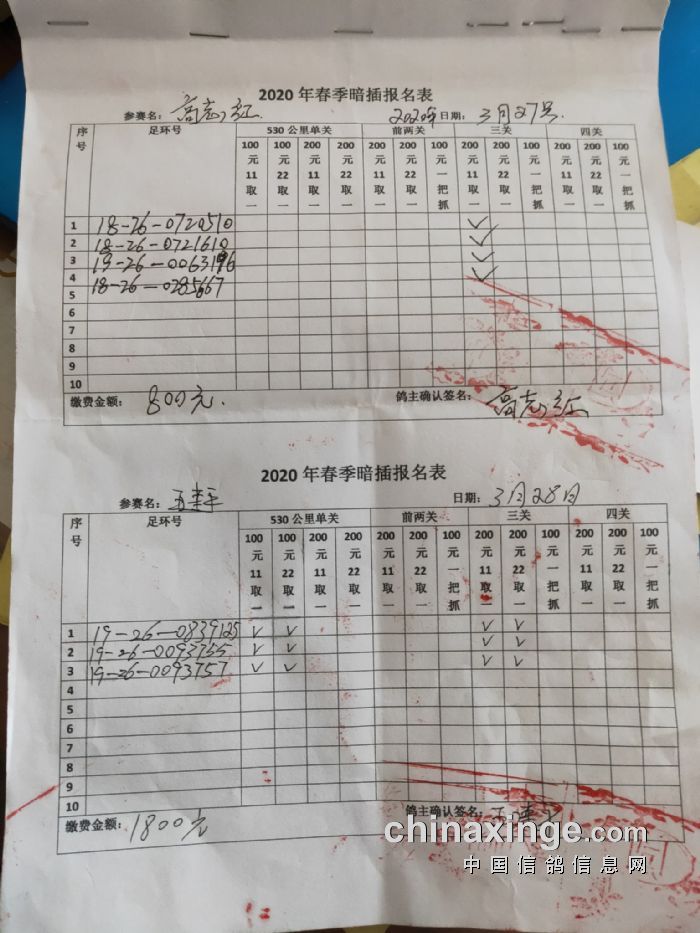 2020 年春季暗插报名表
参赛名: 高志红 2020年 日期: 3月27号.
序号 足环号 530 公里单关 前两关 三关 四关
100元11取一 100元22取一 200元11取一 200元22取一 200元11取一 200元22取一 100元一把抓 200元11取一 200元22取一 100元一把抓 200元11取一 200元22取一 100元一把抓
1 18-26-0720510 ✓
2 18-26-0721610 ✓
3 19-26-0063196 ✓
4 18-26-0285667 ✓
5
6
7
8
9
10
缴费金额: 800元. 鸽主确认签名: 高志红
2020 年春季暗插报名表
参赛名: 日期: 3月28日
序号 足环号 530 公里单关 前两关 三关 四关
100元11取一 100元22取一 200元11取一 200元22取一 200元11取一 200元22取一 100元一把抓 200元11取一 200元22取一 100元一把抓 200元11取一 200元22取一 100元一把抓
1 19-26-0839125 ✓ ✓ ✓ ✓
2 19-26-0093755 ✓ ✓ ✓ ✓
3 19-26-0093757 ✓ ✓ ✓ ✓
4
5
6
7
8
9
10
缴费金额: 1800元 鸽主确认签名:
chinaxinge.com
中国信鸽信息网